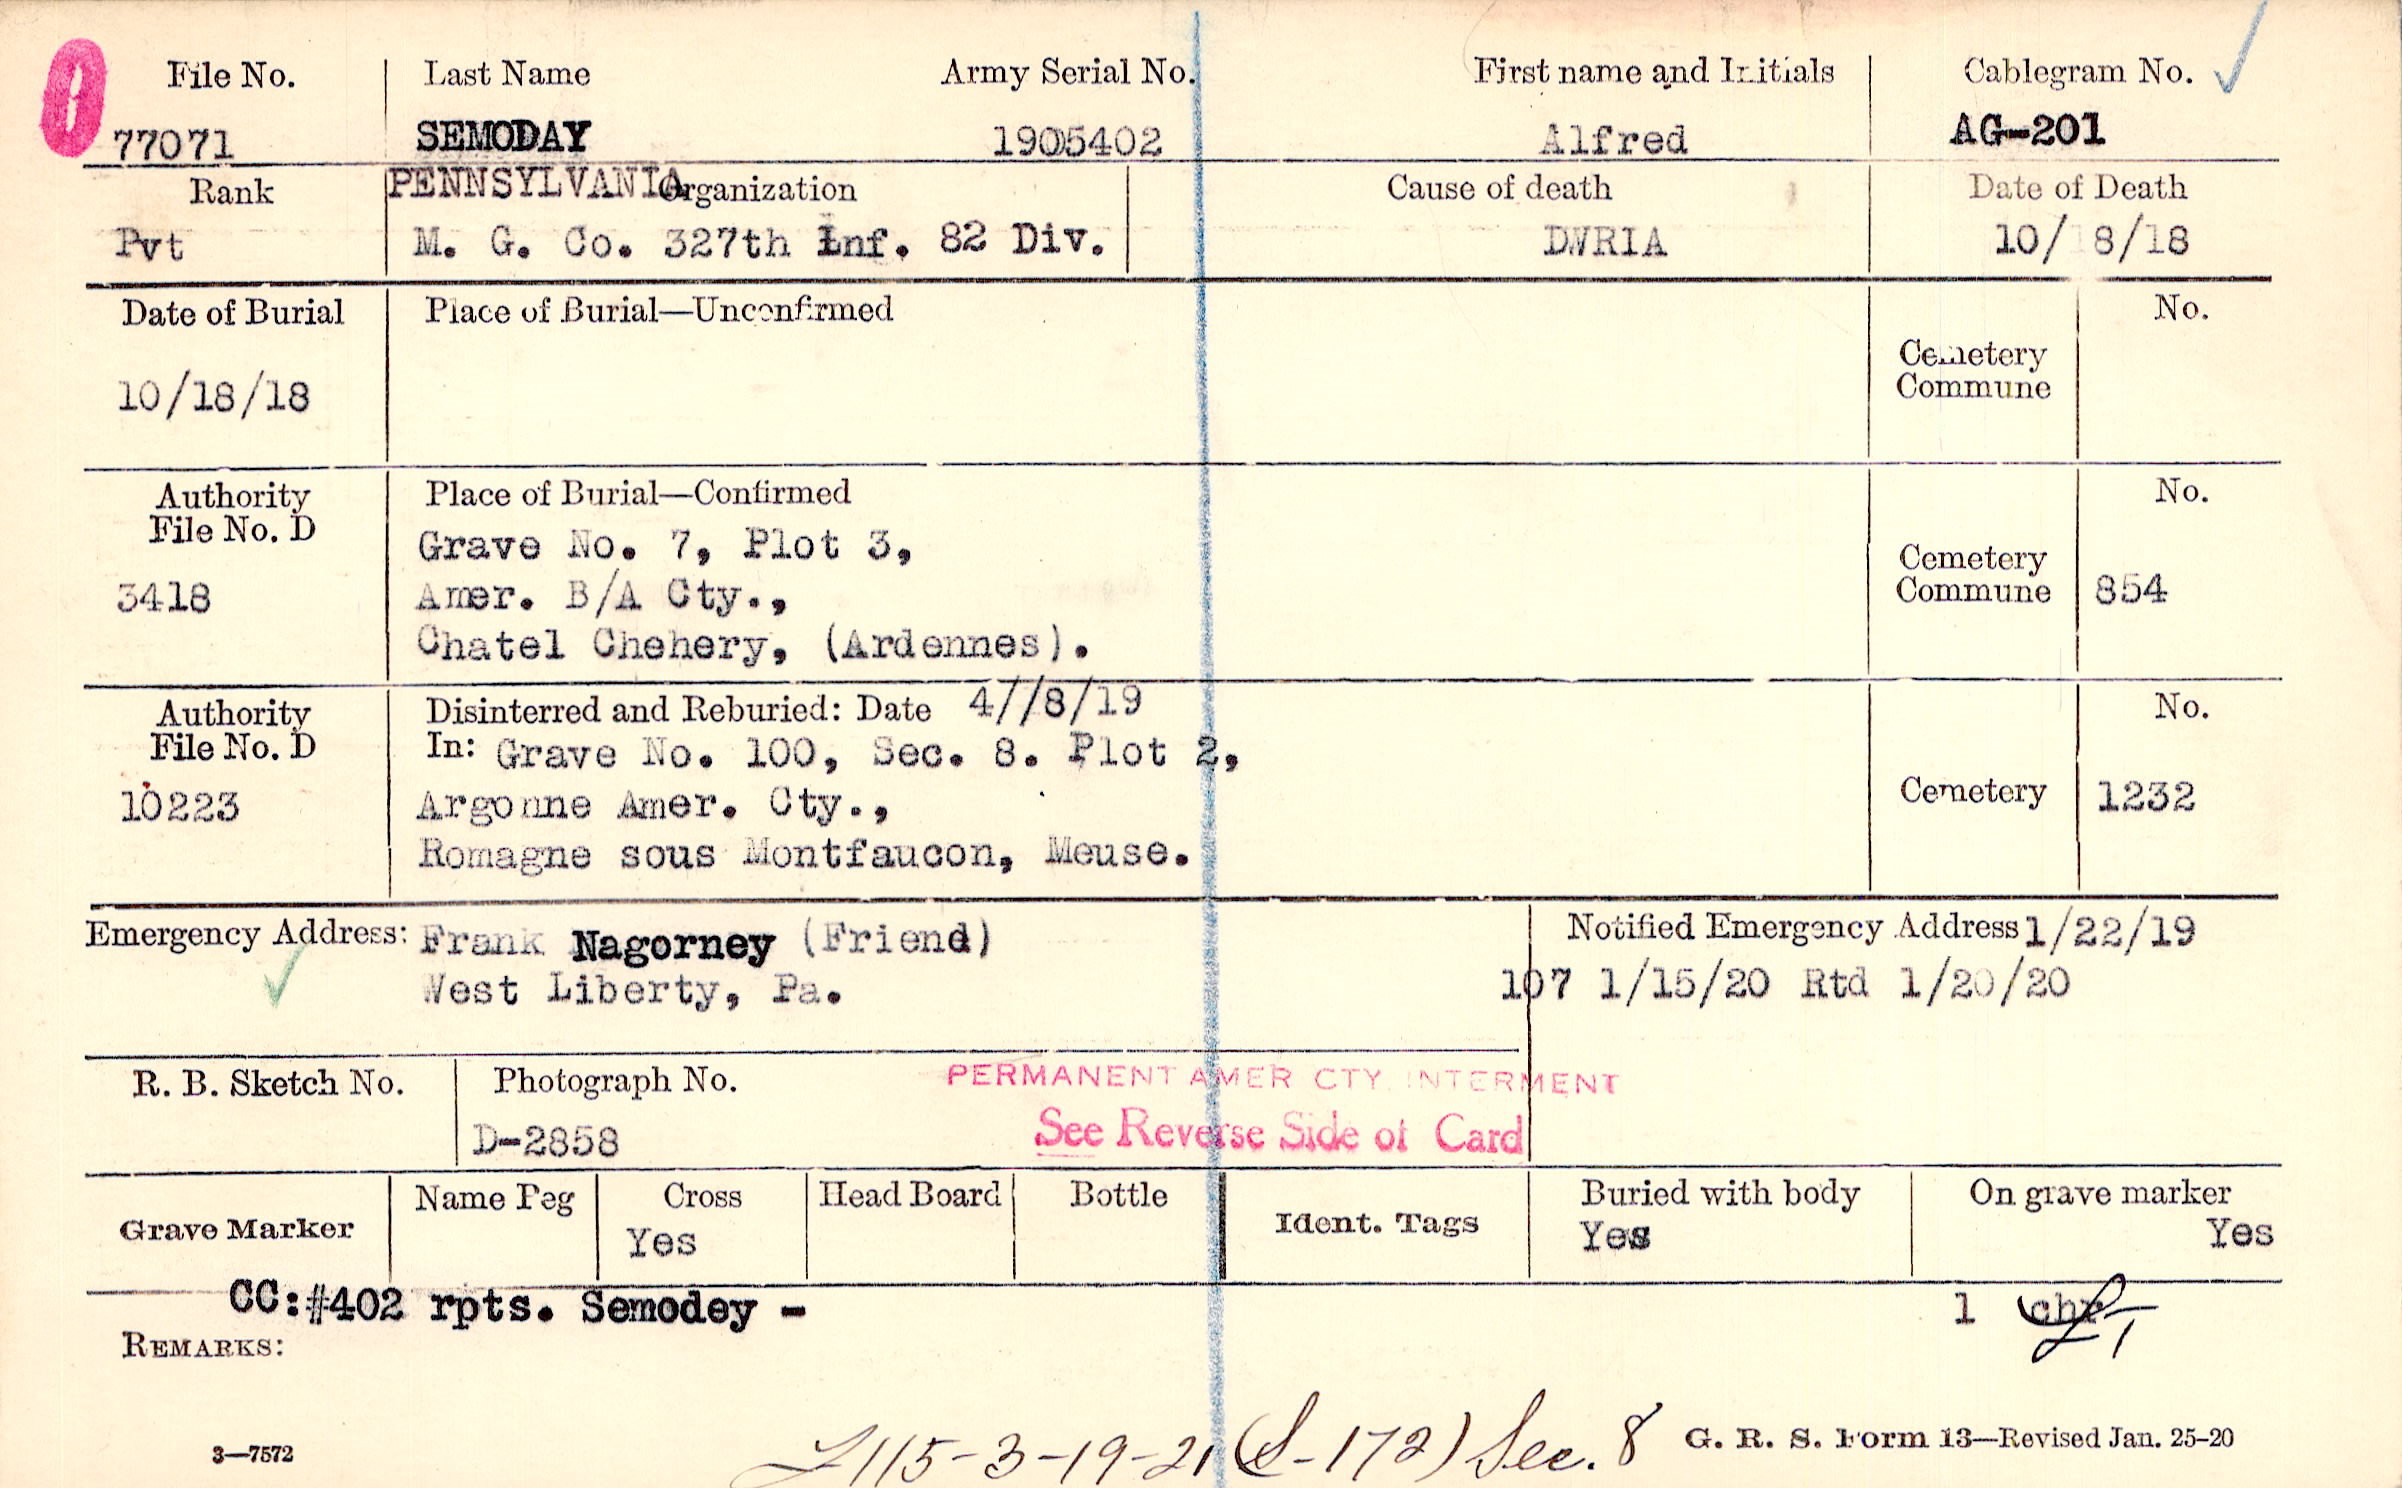 File No. Last Name Army Serial No. First name and Initials Cablegram No.
77071 SEMODAY 1905402 Alfred AG-201
Rank PENNSYLVANIA Organization Cause of death Date of Death
Pvt M. G. Co. 327th Inf. 82 Div. DWRIA 10/ 8/18
Date of Burial Place of Burial—Unconfirmed No.
Cemetery
Commune
10/18/18
Authority Place of Burial—Confirmed No.
File No. D
Grave No. 7, Plot 3,
Cemetery
3418 Amer. B/A Cty., Commune 854
Chatel Chehery, (Ardennes).
Authority Disinterred and Reburied: Date 4//8/19 No.
File No. D In: Grave No. 100, Sec. 8. Plot 2,
10223 Argonne Amer. Cty., Cemetery 1232
Romagne sous Montfaucon, Meuse.
Emergency Address: Frank Nagorney (Friend) Notified Emergency Address 1/22/19
West Liberty, Pa. 107 1/15/20 Rtd 1/20/20
R. B. Sketch No. Photograph No. PERMANENT AMER CTY. INTERMENT
D-2858 See Reverse Side of Card
Grave Marker Name Peg Cross Head Board Bottle Ident. Tags Buried with body On grave marker
Yes Yes Yes
CC:#402 rpts. Semodey - 1 chr
REMARKS:
3—7572 115-3-19-21 (S-172) Sec. 8 G. R. S. Form 13—Revised Jan. 25-20